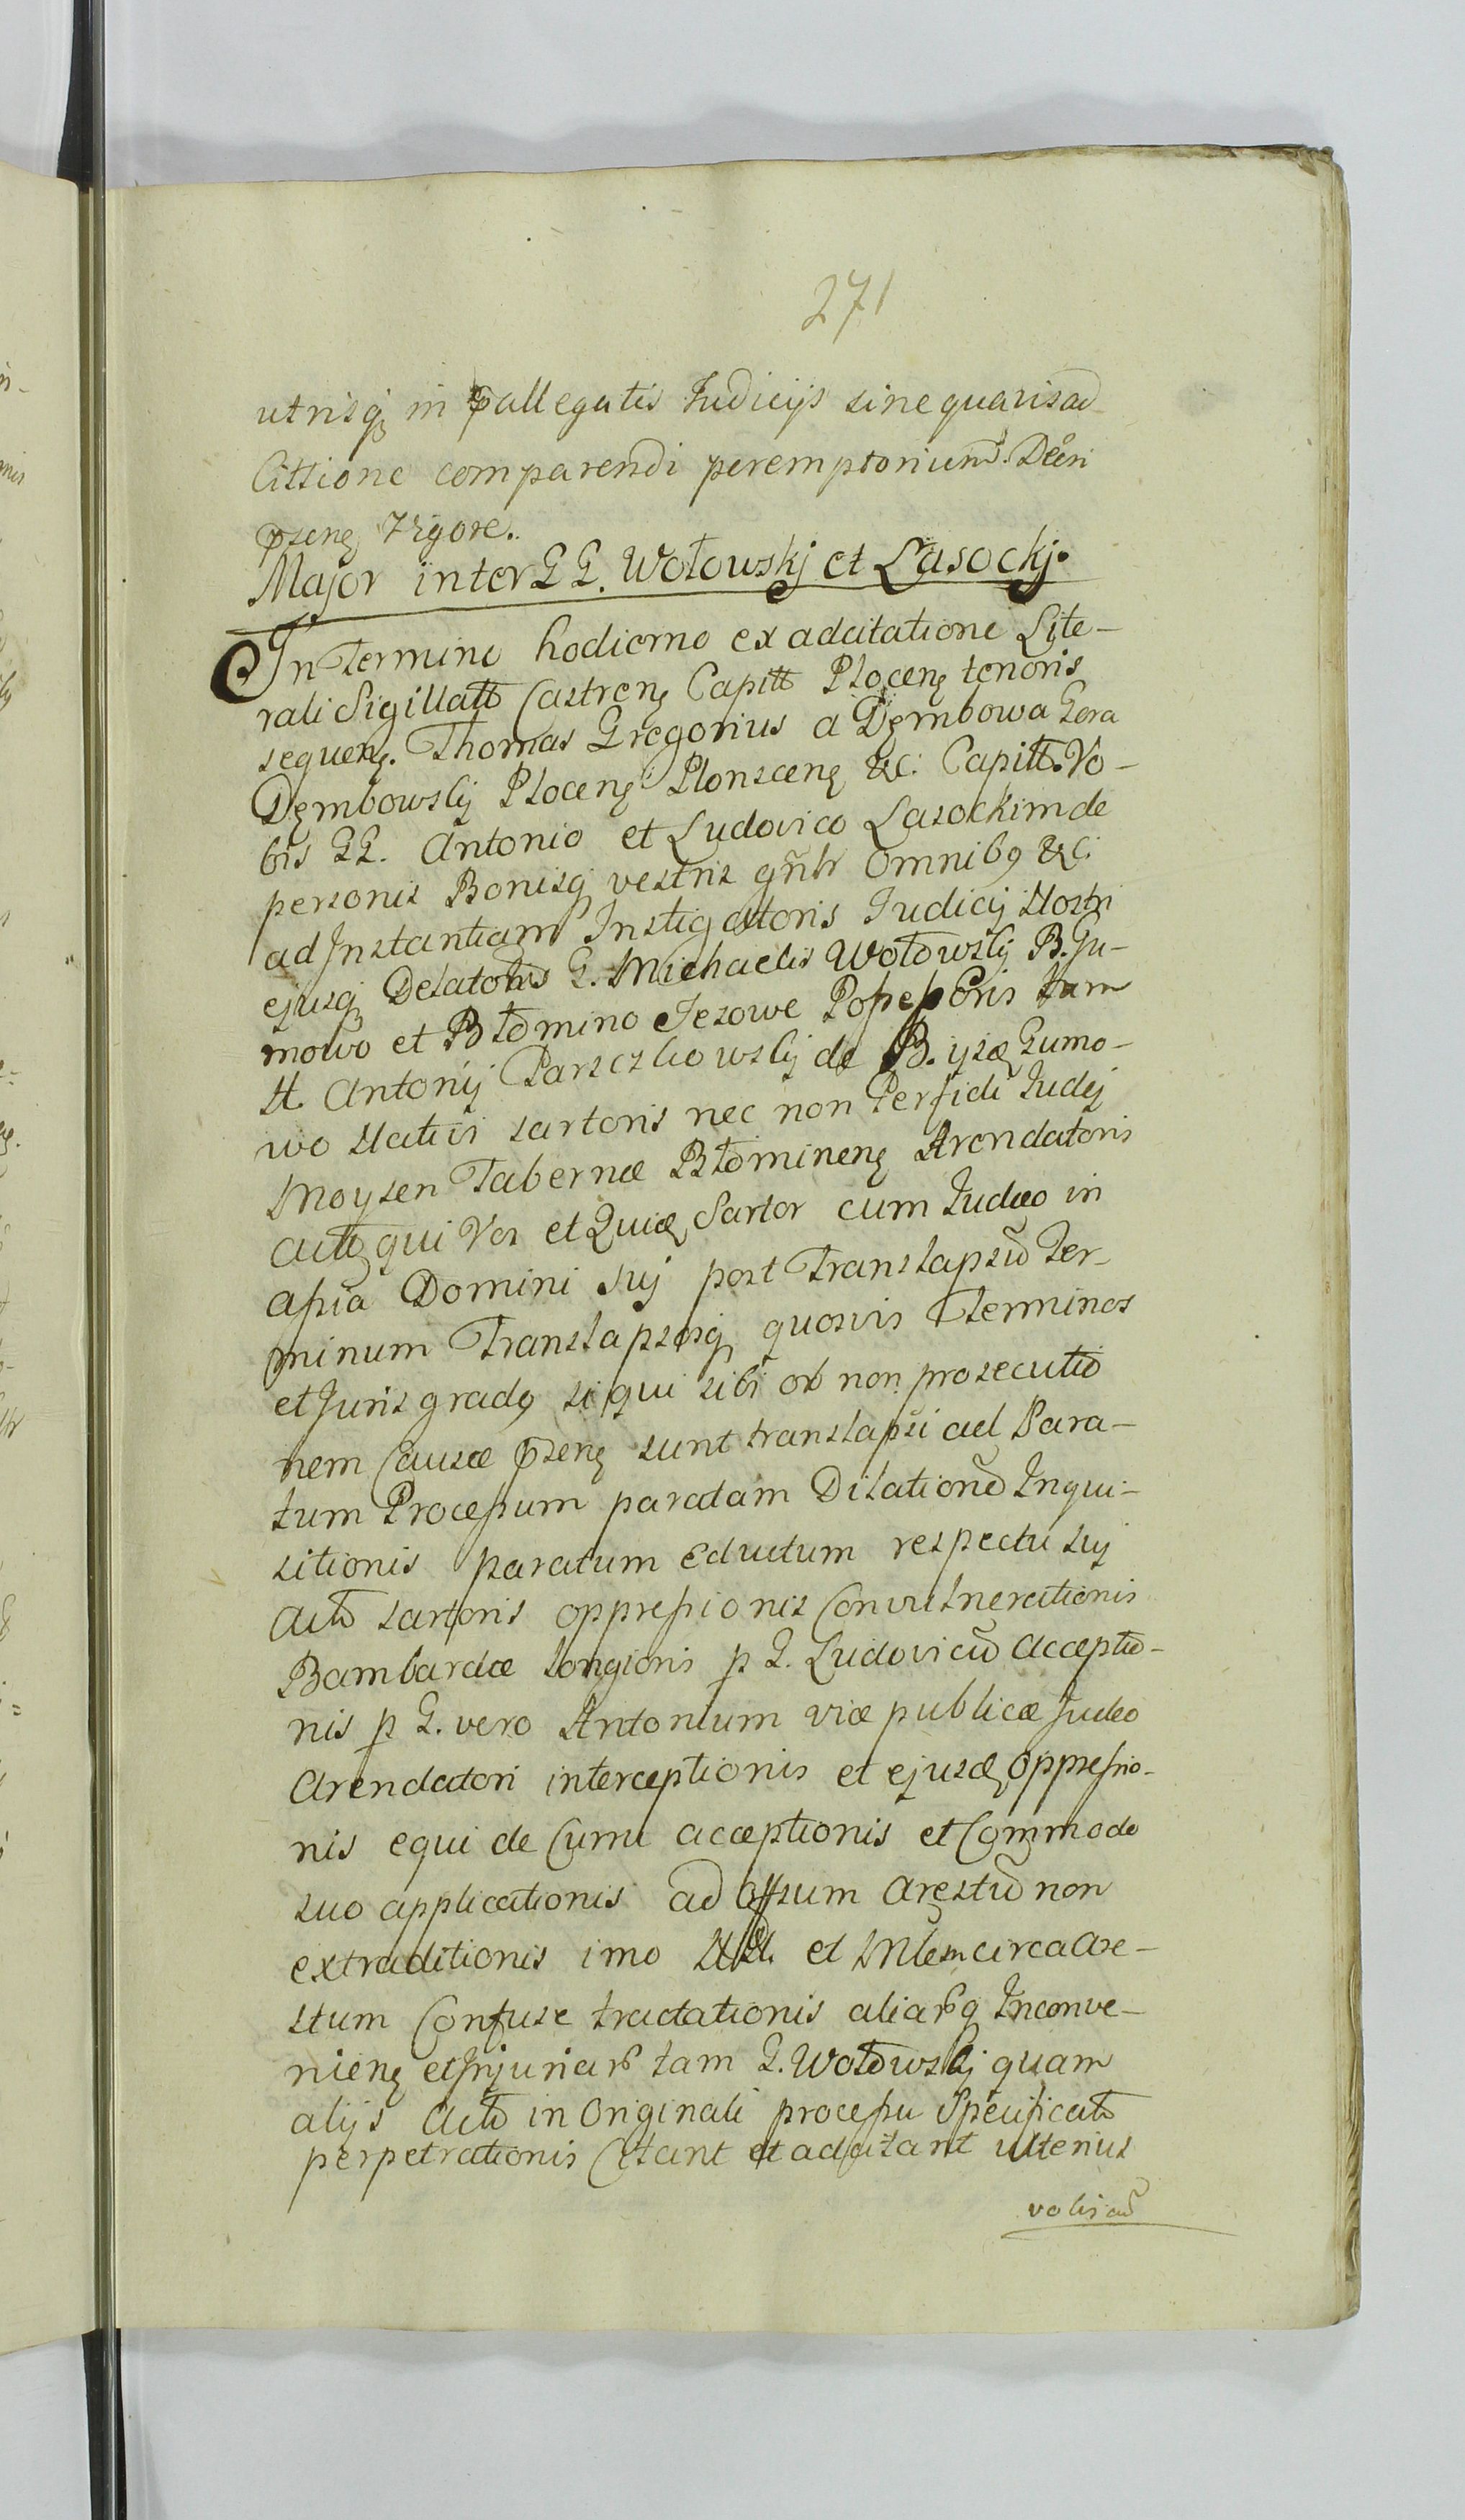 271
utrisq in pallegatis Judicijs sine quavis ad
Cittione comparendi peremptorium. Decri
pseng Vigore.
Major inter GG. Wołowskj et Lasockj.
In Termino hodierno ex adcitatione Lite-
rali Sigillatt Castreng Capitt Ploceng tenoris
sequeng. Thomas Gregorius a Dęmbowa Gora
Dęmbowskj Ploceng Plonsceng &c. Capitt. Vo-
bis GG. Antonio et Ludovico Lasockim de
personis Bonisq vestris gnlr Omnibq &c.
ad Instantiam Instigatoris Judicij Nostri
ejusq Delatoris G. Michaelis Wołowskj B. Gu-
mowo et Błomino Jezowe Possessoris tam
H. Antonij Parszkowskj de B. ijsd Gumo-
wo Nativi sartoris nec non Perfidi Judej
Moysen Tabernæ Błomineng Arendatoris
Actt qui Vos et Quid Sartor cum Judæo in
assia Domini suj post Translapsu Ter-
minum Translapsosq quosvis Terminos
et Juris gradq si qui sibi ob non prosecutio
nem Causæ pseng sunt translapsi ad Para-
tum Processum paratam Dilatione Inqui-
sitionis paratum eductum respectu suj
Acto sartoris oppressionis Convulnerationis
Bambardæ longioris p G. Ludovicu acceptio-
nis p G. vero Antonium viæ publicæ Judeo
Arendatori interceptionis et ejusd oppressio-
nis equi de Curru acceptionis et Commodo
suo applicationis ad Offsum Arestu non
extraditionis imo et circa Are-
stum Confuse tractationis aliarq Inconve-
nieng et Injuriar tam G. Wołowskj quam
alijs Acto in Originali processu Specificato
perpetrationis Citant et adcitant ulterius